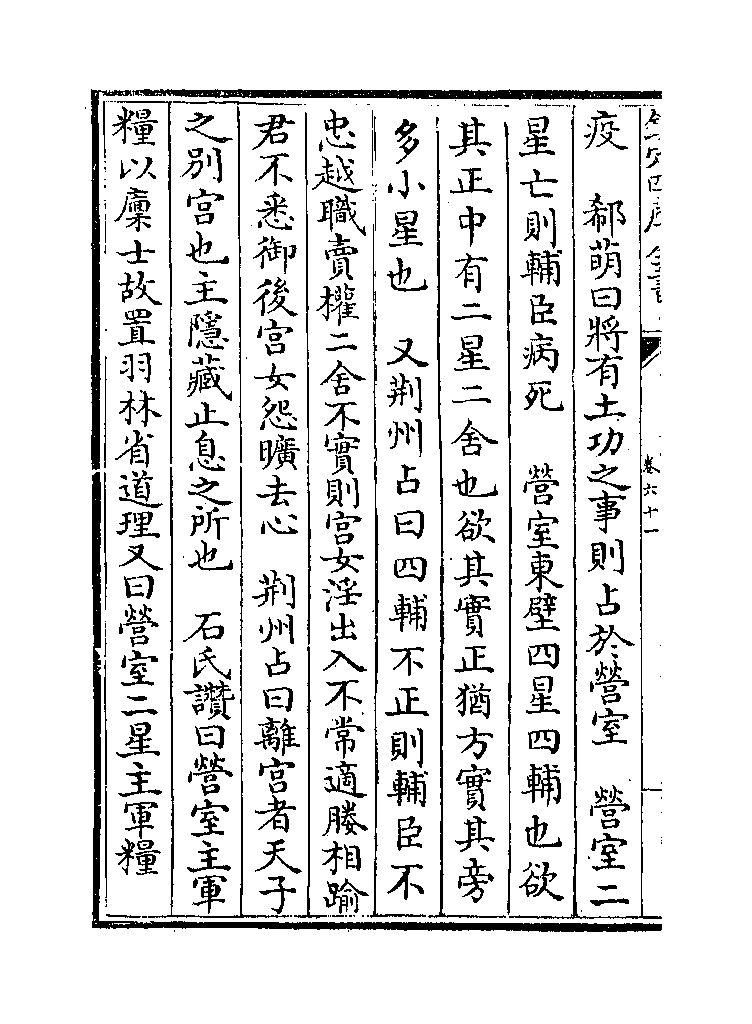 欽定四庫全書
卷六十一
疫　郗萌曰將有土功之事則占於營室　營室二
星亡則輔臣病死　營室東壁四星四輔也欲
其正中有二星二舍也欲其實正猶方實其旁
多小星也　又荆州占曰四輔不正則輔臣不
忠越職賣權二舍不實則宫女淫出入不常適媵相踰
君不悉御後宫女怨曠去心　荆州占曰離宫者天子
之别宫也主隱藏止息之所也　石氏讚曰營室主軍
糧以廩士故置羽林省道理又曰營室二星主軍糧